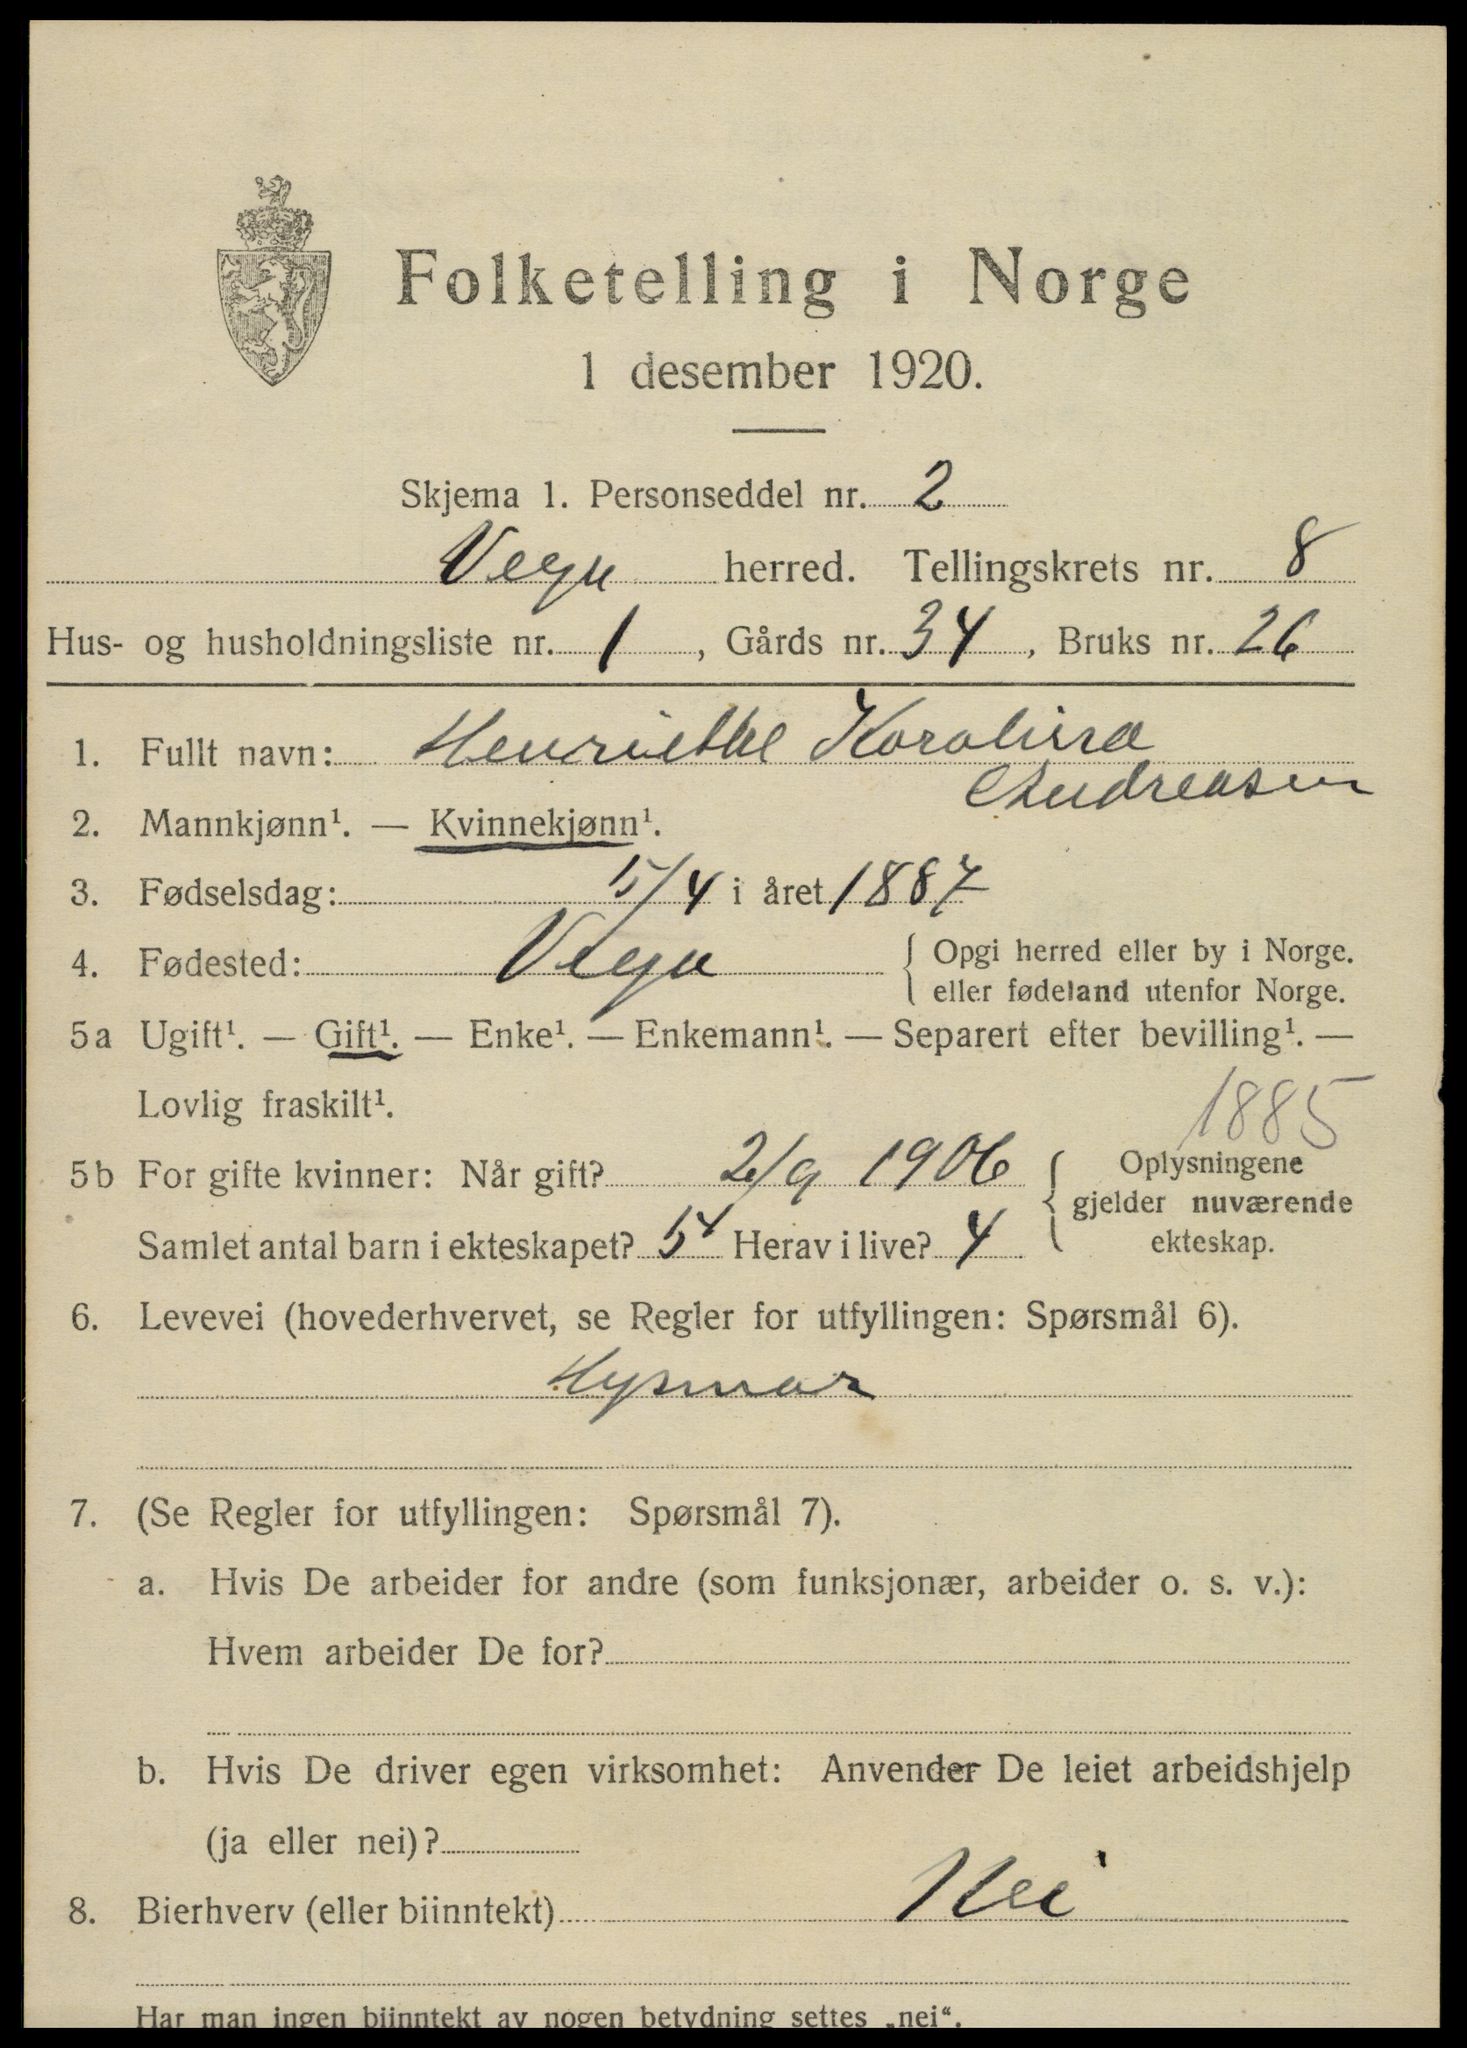 Folketelling i Norge
1 desember 1920.
Skjema 1. Personseddel nr. 2
Vega herred. Tellingskrets nr. 8
Hus- og husholdningsliste nr. 1, Gårds nr. 34, Bruks nr. 26
1. Fullt navn: Henriette Karolina
Andreasen
2. Mannkjønn¹. — Kvinnekjønn¹.
3. Fødselsdag: 5/4 i året 1887
4. Fødested: Vega { Opgi herred eller by i Norge.
eller fødeland utenfor Norge.
5a Ugift¹. — Gift¹. — Enke¹. — Enkemann¹. — Separert efter bevilling¹. —
Lovlig fraskilt¹.
1885
5b For gifte kvinner: Når gift? 2/9 1906 { Oplysningene
gjelder nuværende
Samlet antal barn i ekteskapet? 5 Herav i live? 4 ekteskap.
6. Levevei (hovederhvervet, se Regler for utfyllingen: Spørsmål 6).
Hysmor
7. (Se Regler for utfyllingen: Spørsmål 7).
a. Hvis De arbeider for andre (som funksjonær, arbeider o. s. v.):
Hvem arbeider De for?
b. Hvis De driver egen virksomhet: Anvender De leiet arbeidshjelp
(ja eller nei)?
8. Bierhverv (eller biinntekt) Nei
Har man ingen biinntekt av nogen betydning settes „nei“.